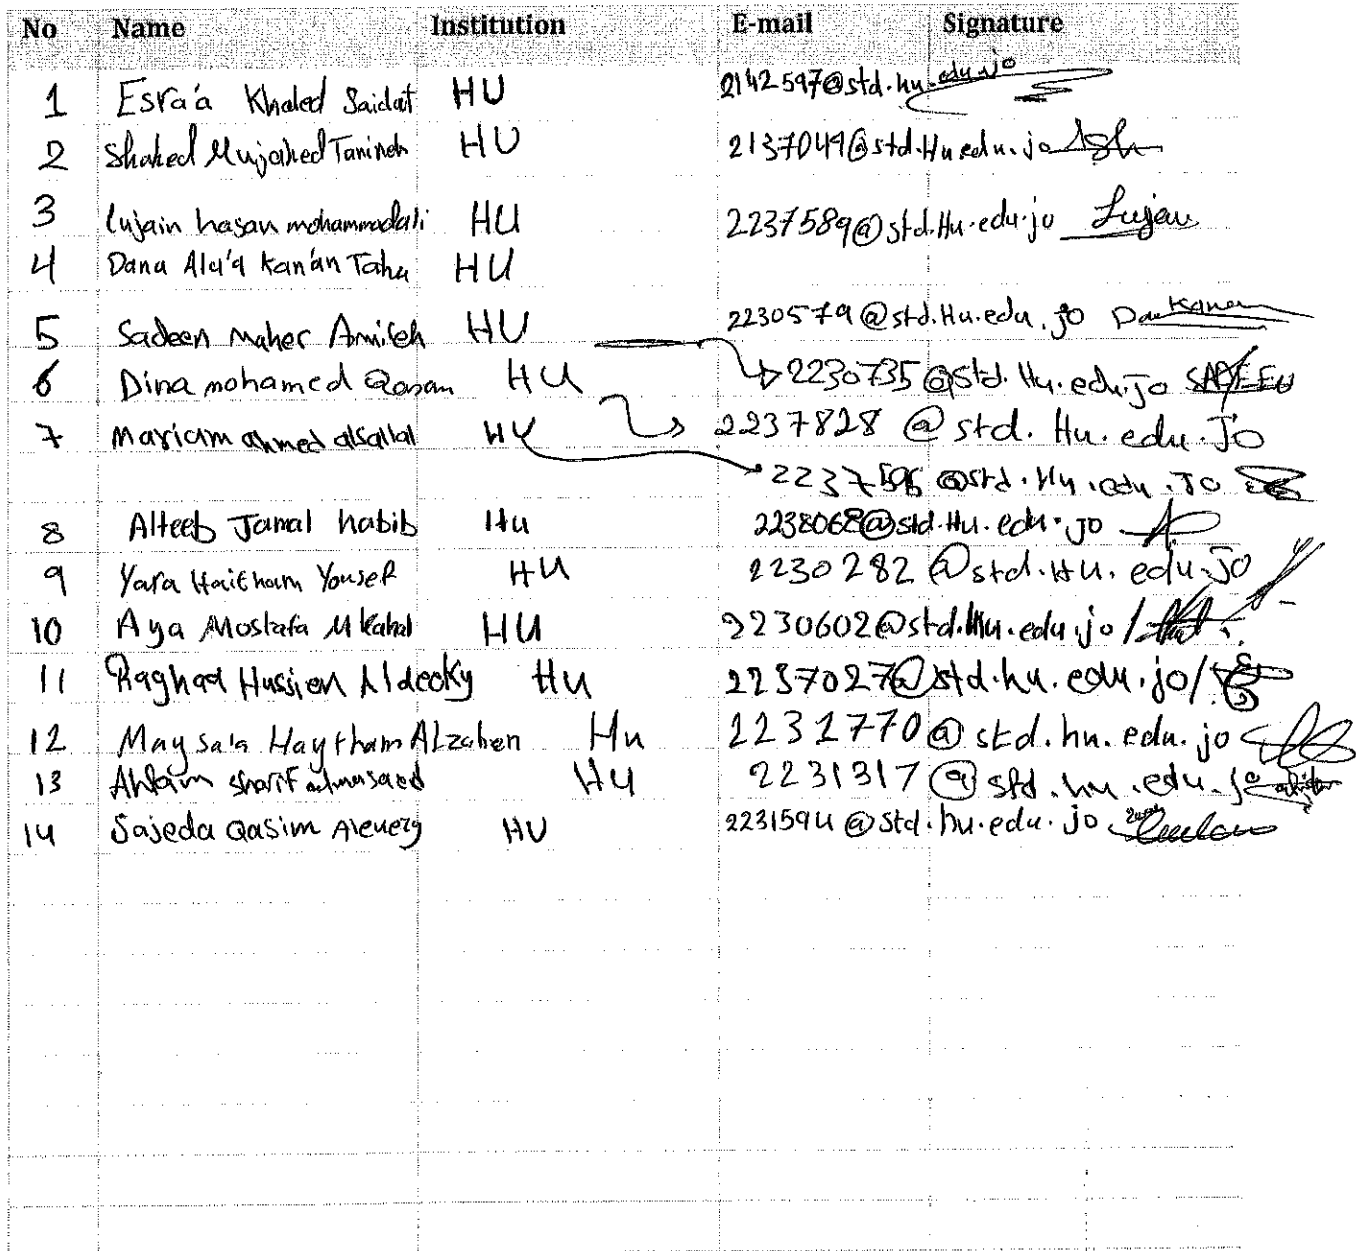 No Name Institution E-mail Signature
1 Esra'a Khaled Saidat HU 2142597@std.hu.edu.jo
2 Shahed Mujahed Tanineh HU 2137049@std.Hu.edu.jo
3 lujain hasan mohammadali HU 2237589@std.Hu.edu.jo Lujain
4 Dana Ala'a Kan'an Taha HU
5 Sadeen Maher Amireh HU 2230579@std.Hu.edu.jo Kanan
6 Dina mohamed Qasan HU 2230735@std.Hu.edu.jo SADEEN
7 Mariam ahmed alsallal HU 2237828@std.Hu.edu.Jo
@std.Hu.edu.Jo
8 Alteeb Jamal habib Hu 2238068@std.Hu.edu.jo
9 Yara Haitham Yousef HU 2230282@std.HU.edu.Jo
10 Aya Mostafa M Kahal HU 2230602@std.Hu.edu.jo/
11 Raghad Hussien Aldecky Hu 2237027@std.hu.edu.jo/
12 Maysa'a Haytham ALzaben Hu 2232770@std.hu.edu.jo
13 Ahlam sharif almasaed Hu 2231317@std.hu.edu.jo
14 Sajeda Qasim HU 2231594@std.hu.edu.jo